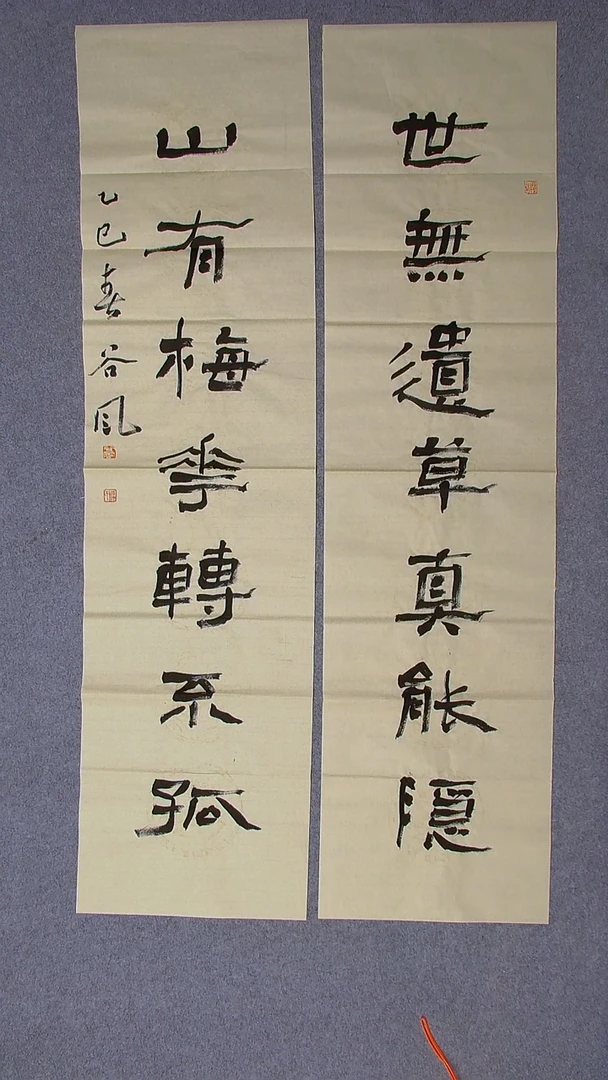 世無遺草真能隱
山有梅花轉不孤
乙巳春谷風